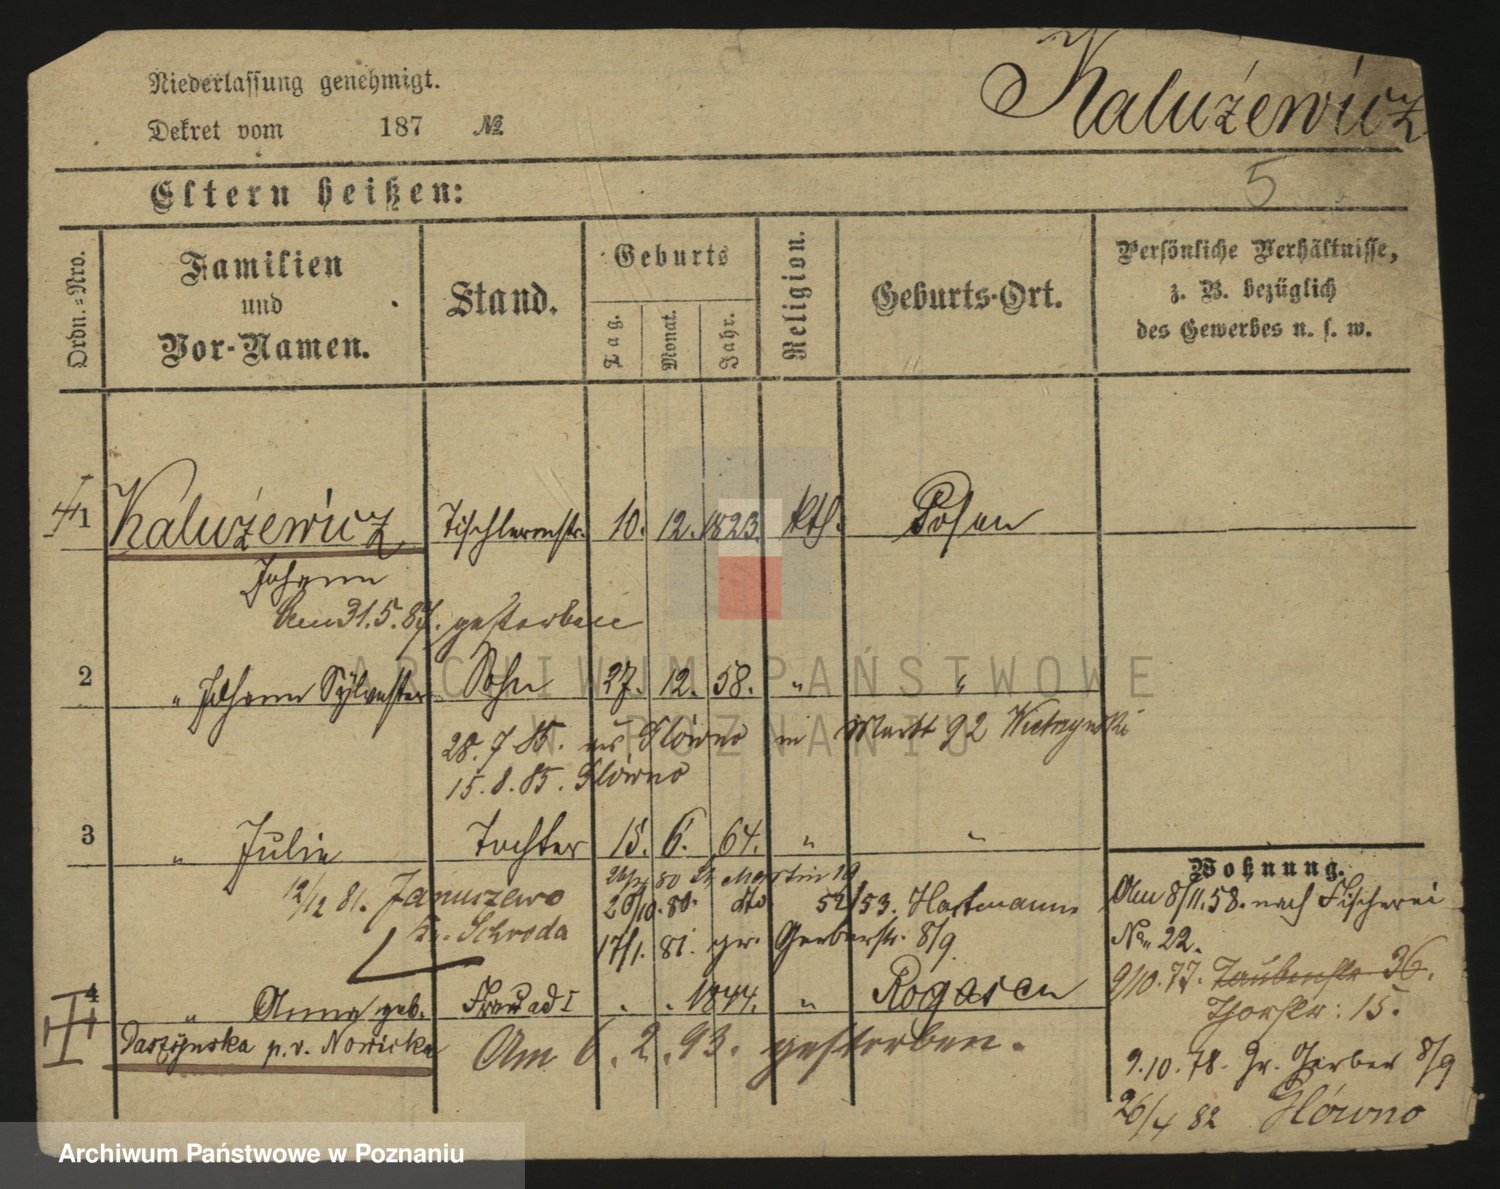 Niederlassung genehmigt.
Kalużewicz
Dekret vom 187 №
Eltern heißen:
5
Ordn.=Nro.
Familien
und
Vor-Namen.
Stand.
Geburts
Tag.
Monat.
Jahr.
Religion.
Geburts-Ort.
Persönliche Verhältnisse,
z. B. bezüglich
des Gewerbes u. s. w.
1 Kalużewicz Tischlermstr. 10. 12. 1823. kth. Posen
Johann
Am 31.5.87. gestorben
2 " Johann Sylvester Sohn 27. 12. 58. " "
28.7.85. aus Główno in Markt 92
15.8.85. Główno
3 " Julie Tochter 15. 6. 64. " "
80 St Martin 19
12/12 81. Januszewo 20/10. 80. dto 52/53. Hartmann
Kr. Schroda 17/1. 81. gr. Gerberstr. 8/9.
4 " Anna geb. Frau ad 1 " " 1844. " Rogasen
Daszyńska p.v. Nowicka Am 6. 2. 93. gestorben.
Wohnung.
Am 8/11.58. nach Fischerei
No. 22.
9/10.77. Taubenstr 36.
Thorstr: 15.
9.10.78. Gr. Gerber 8/9
26/4 82 Główno
ARCHIWUM PAŃSTWOWE
W POZNANIU
Archiwum Państwowe w Poznaniu